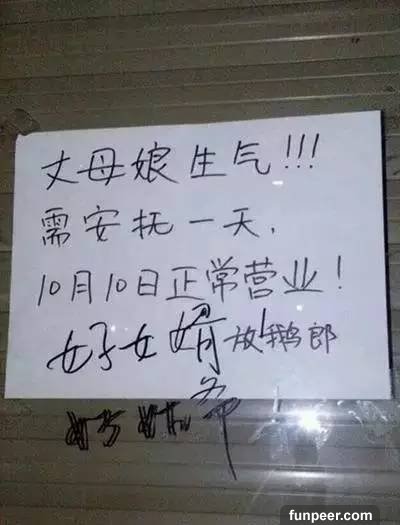 丈母娘生气!!!
需安抚一天.
10月10日正常营业!
好女婿 放鹅郎
funpeer.com